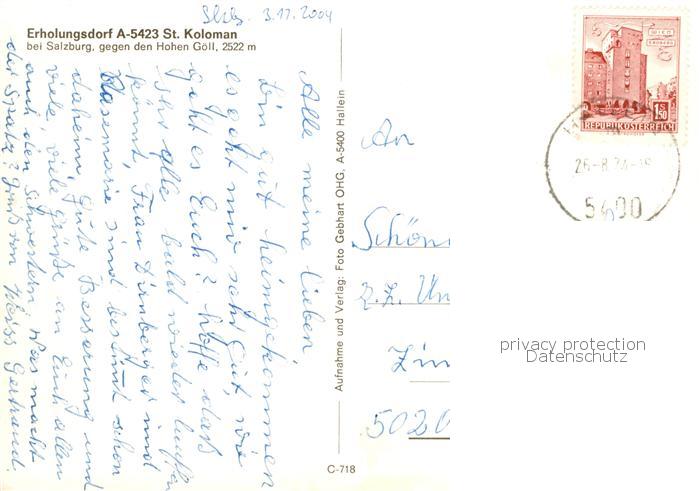 Slzb. 3.11.2004
Erholungsdorf A-5423 St. Koloman
bei Salzburg, gegen den Hohen Göll, 2522 m
Alle meine Lieben
bin gut heimgekommen
es geht mir sehr gut wie
geht es Euch? hoffe daß
Ihr alle bald wieder laufen
könnt, Frau Dirnberger und
Rosemarie sind bestimt schon
daheim, gute Besserung und
viele, viele grüße an Euch allen
auch den Schwestern, was macht
der Spatz? grüß in Gertraud
Aufnahme und Verlag: Foto Gebhart OHG, A-5400 Hallein
C-718
WIEN
ERDBERG
1S50
REPUBLIK ÖSTERREICH
26.-8.74-18
5400
An
Schön
z.Z. Un
Zim
5020
privacy protection
Datenschutz